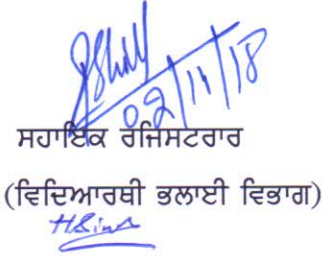 02/11/18
ਸਹਾਇਕ ਰਜਿਸਟਰਾਰ
(ਵਿਦਿਆਰਥੀ ਭਲਾਈ ਵਿਭਾਗ)